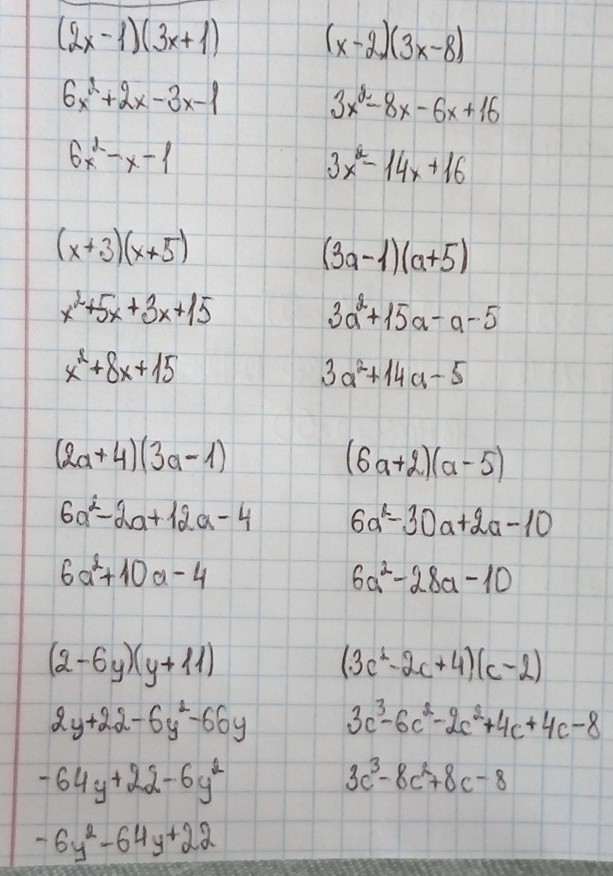 (2x-1)(3x+1)
6x²+2x-3x-1
6x²-x-1
(x-2)(3x-8)
3x²-8x-6x+16
3x²-14x+16
(x+3)(x+5)
x²+5x+3x+15
x²+8x+15
(3a-1)(a+5)
3a²+15a-a-5
3a²+14a-5
(2a+4)(3a-1)
6a²-2a+12a-4
6a²+10a-4
(6a+2)(a-5)
6a²-30a+2a-10
6a²-28a-10
(2-6y)(y+11)
2y+22-6y²-66y
-64y+22-6y²
-6y²-64y+22
(3c²-2c+4)(c-2)
3c³-6c²-2c²+4c+4c-8
3c³-8c²+8c-8